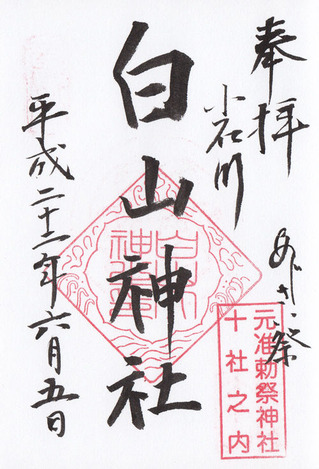 奉拝
小石川
あじさい祭
白山神社
平成二十二年六月五日
元准勅祭神社
十社之内